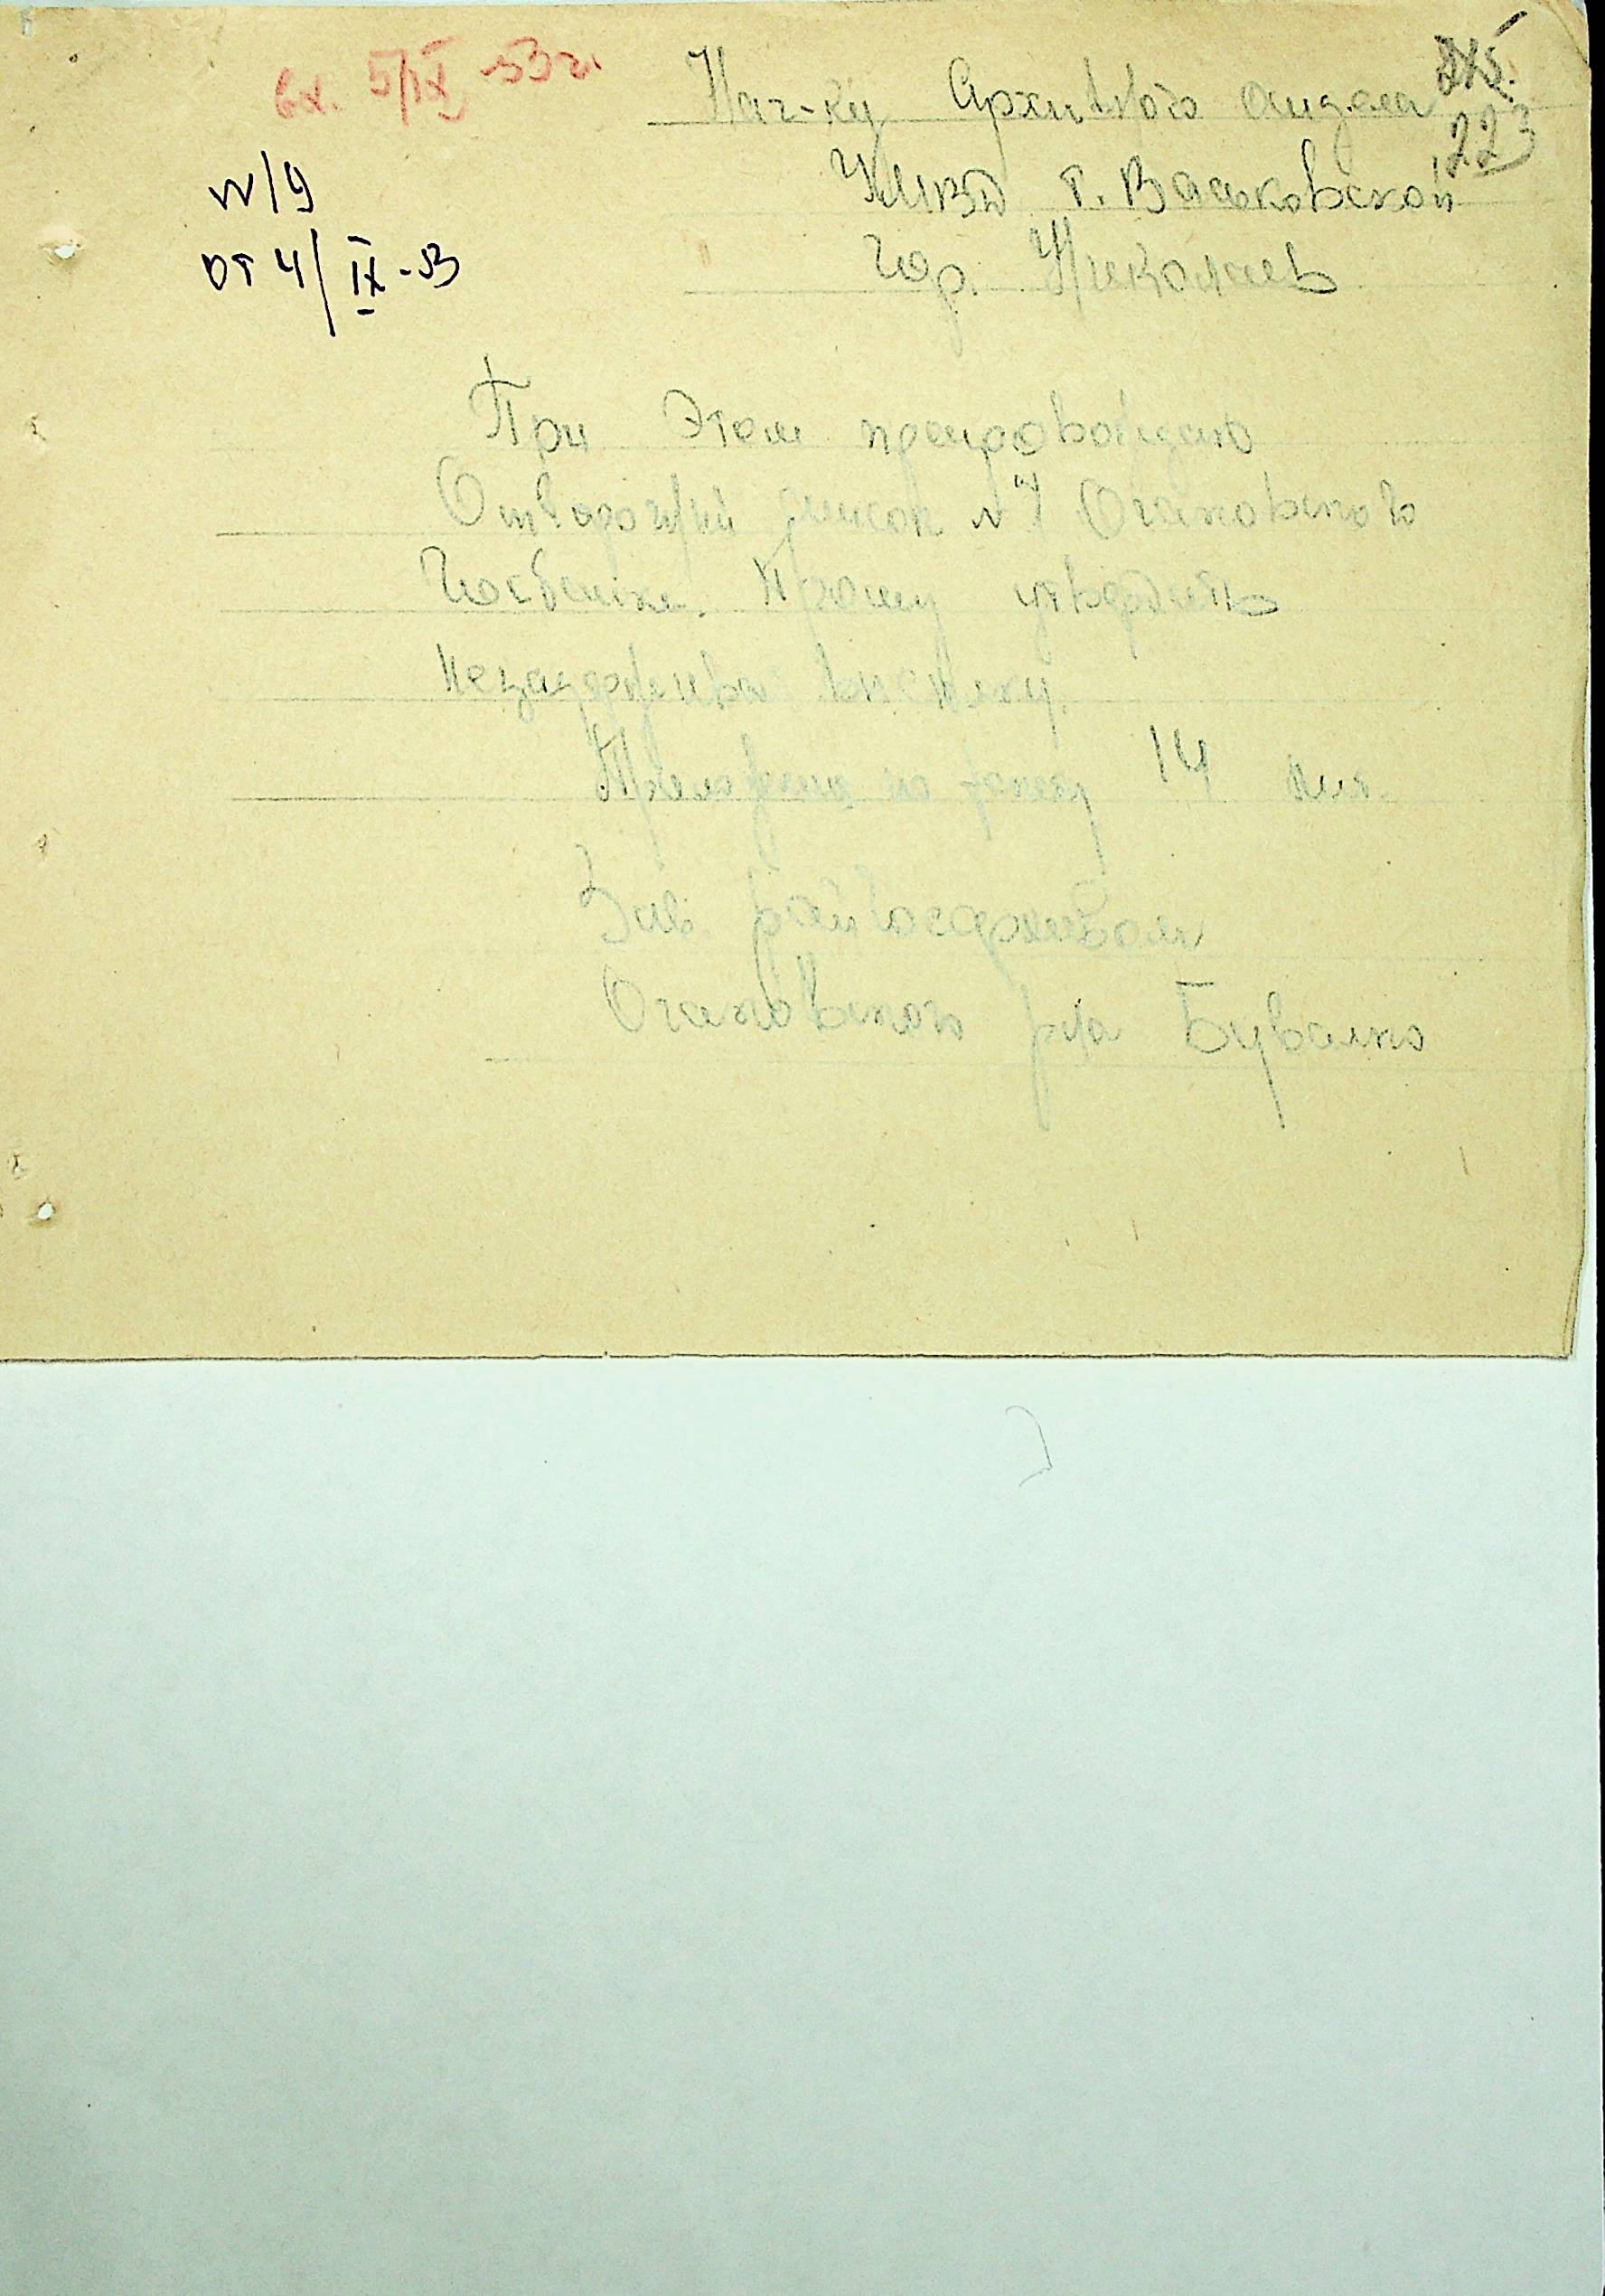 вх. 5/IX -53 г.
223
Нач-ку Архивного отдела
УМВД т. Васьковской
Гор. Николаев
N/9
от 4/IX-53
При этом препровождаю
Отборочный список № 7 Очаковского
Госбанка. Прошу утвердить
незадерживая высылку.
Приложение на 14 лис.
Зав. райгосархивом
Очаковского р-на Бувалко